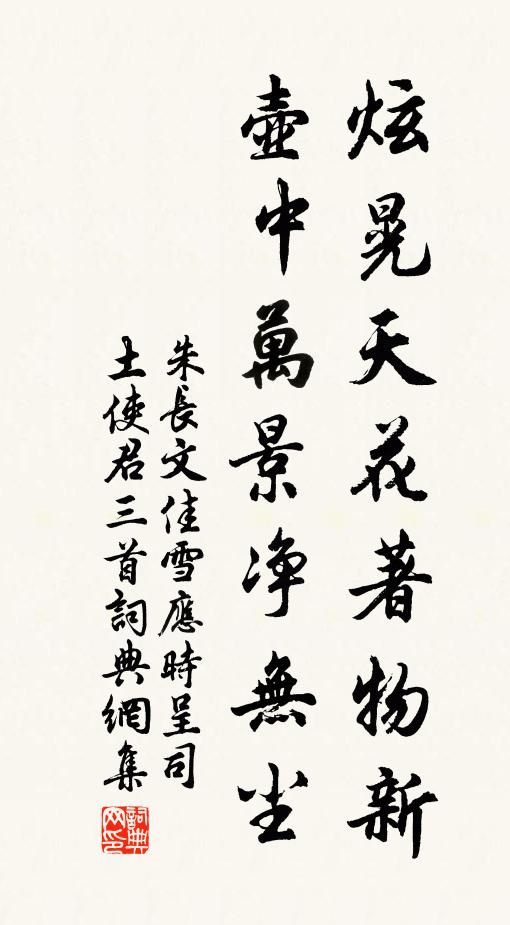 炫晃天花著物新
壺中萬景净無尘
朱長文佳雪應時呈司
土使君三首詞典網集
詞典网印